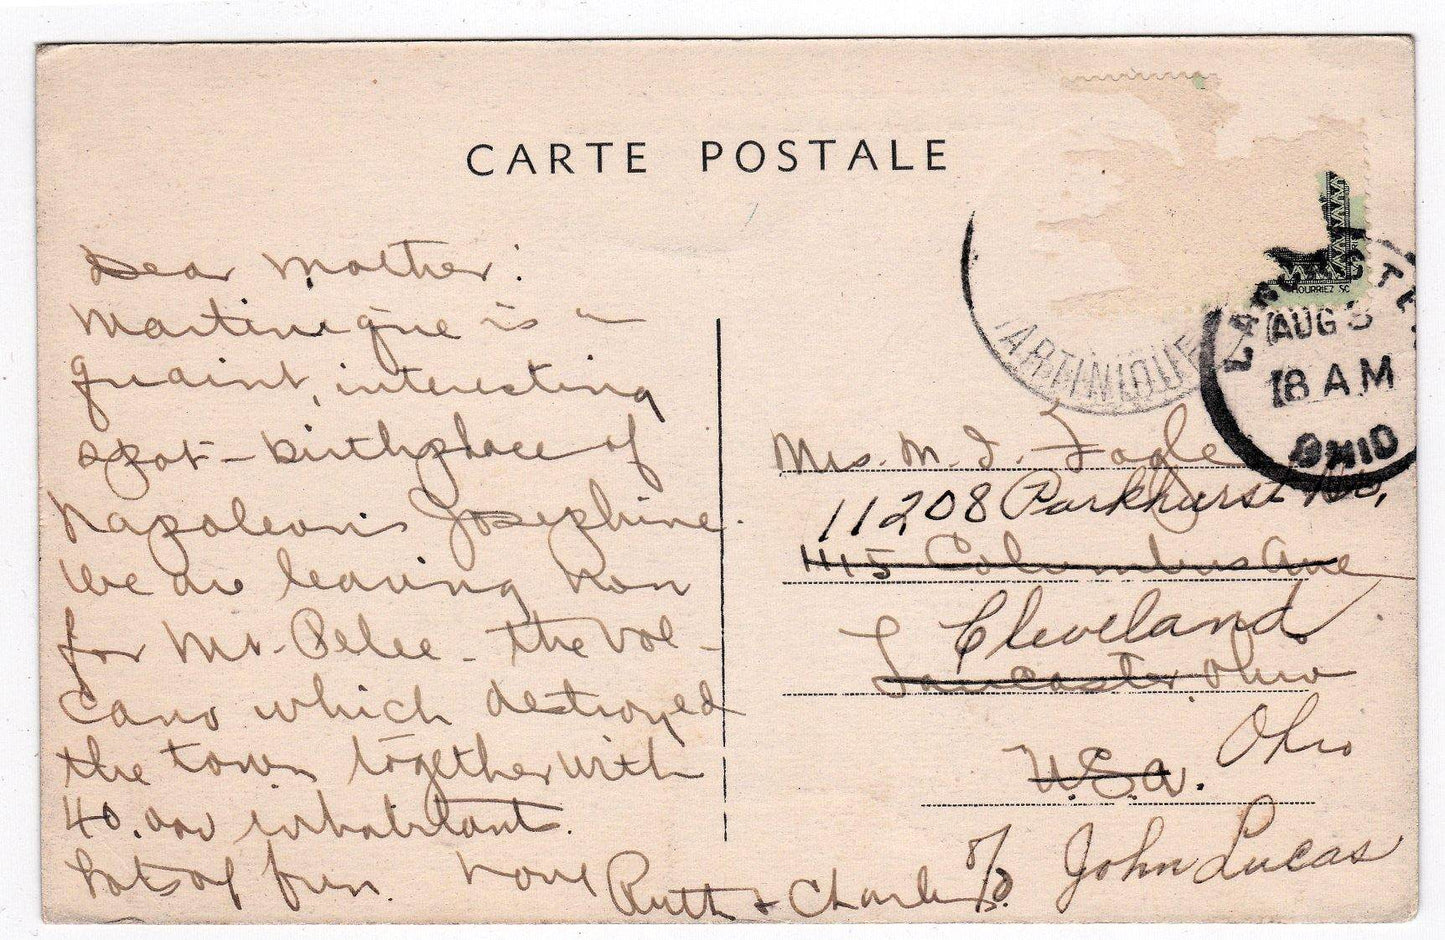 CARTE POSTALE
Dear Mother:
Martinique is a
quaint, interesting
spot - birthplace of
Napoleon's Josephine.
We are leaving now
for Mt. Pelee - the vol-
cano which destroyed
the town together with
40,000 inhabitants.
Lots of fun. Love Ruth + Charles
HOURRIEZ SC
MARTINIQUE
LANCASTER
AUG 3
8 AM
OHIO
Mrs. M. I. Fogle
11208 Parkhurst Dr,
415 Columbus Ave
Cleveland
Lancaster, Ohio
Ohio
U.S.A.
c/o John Lucas